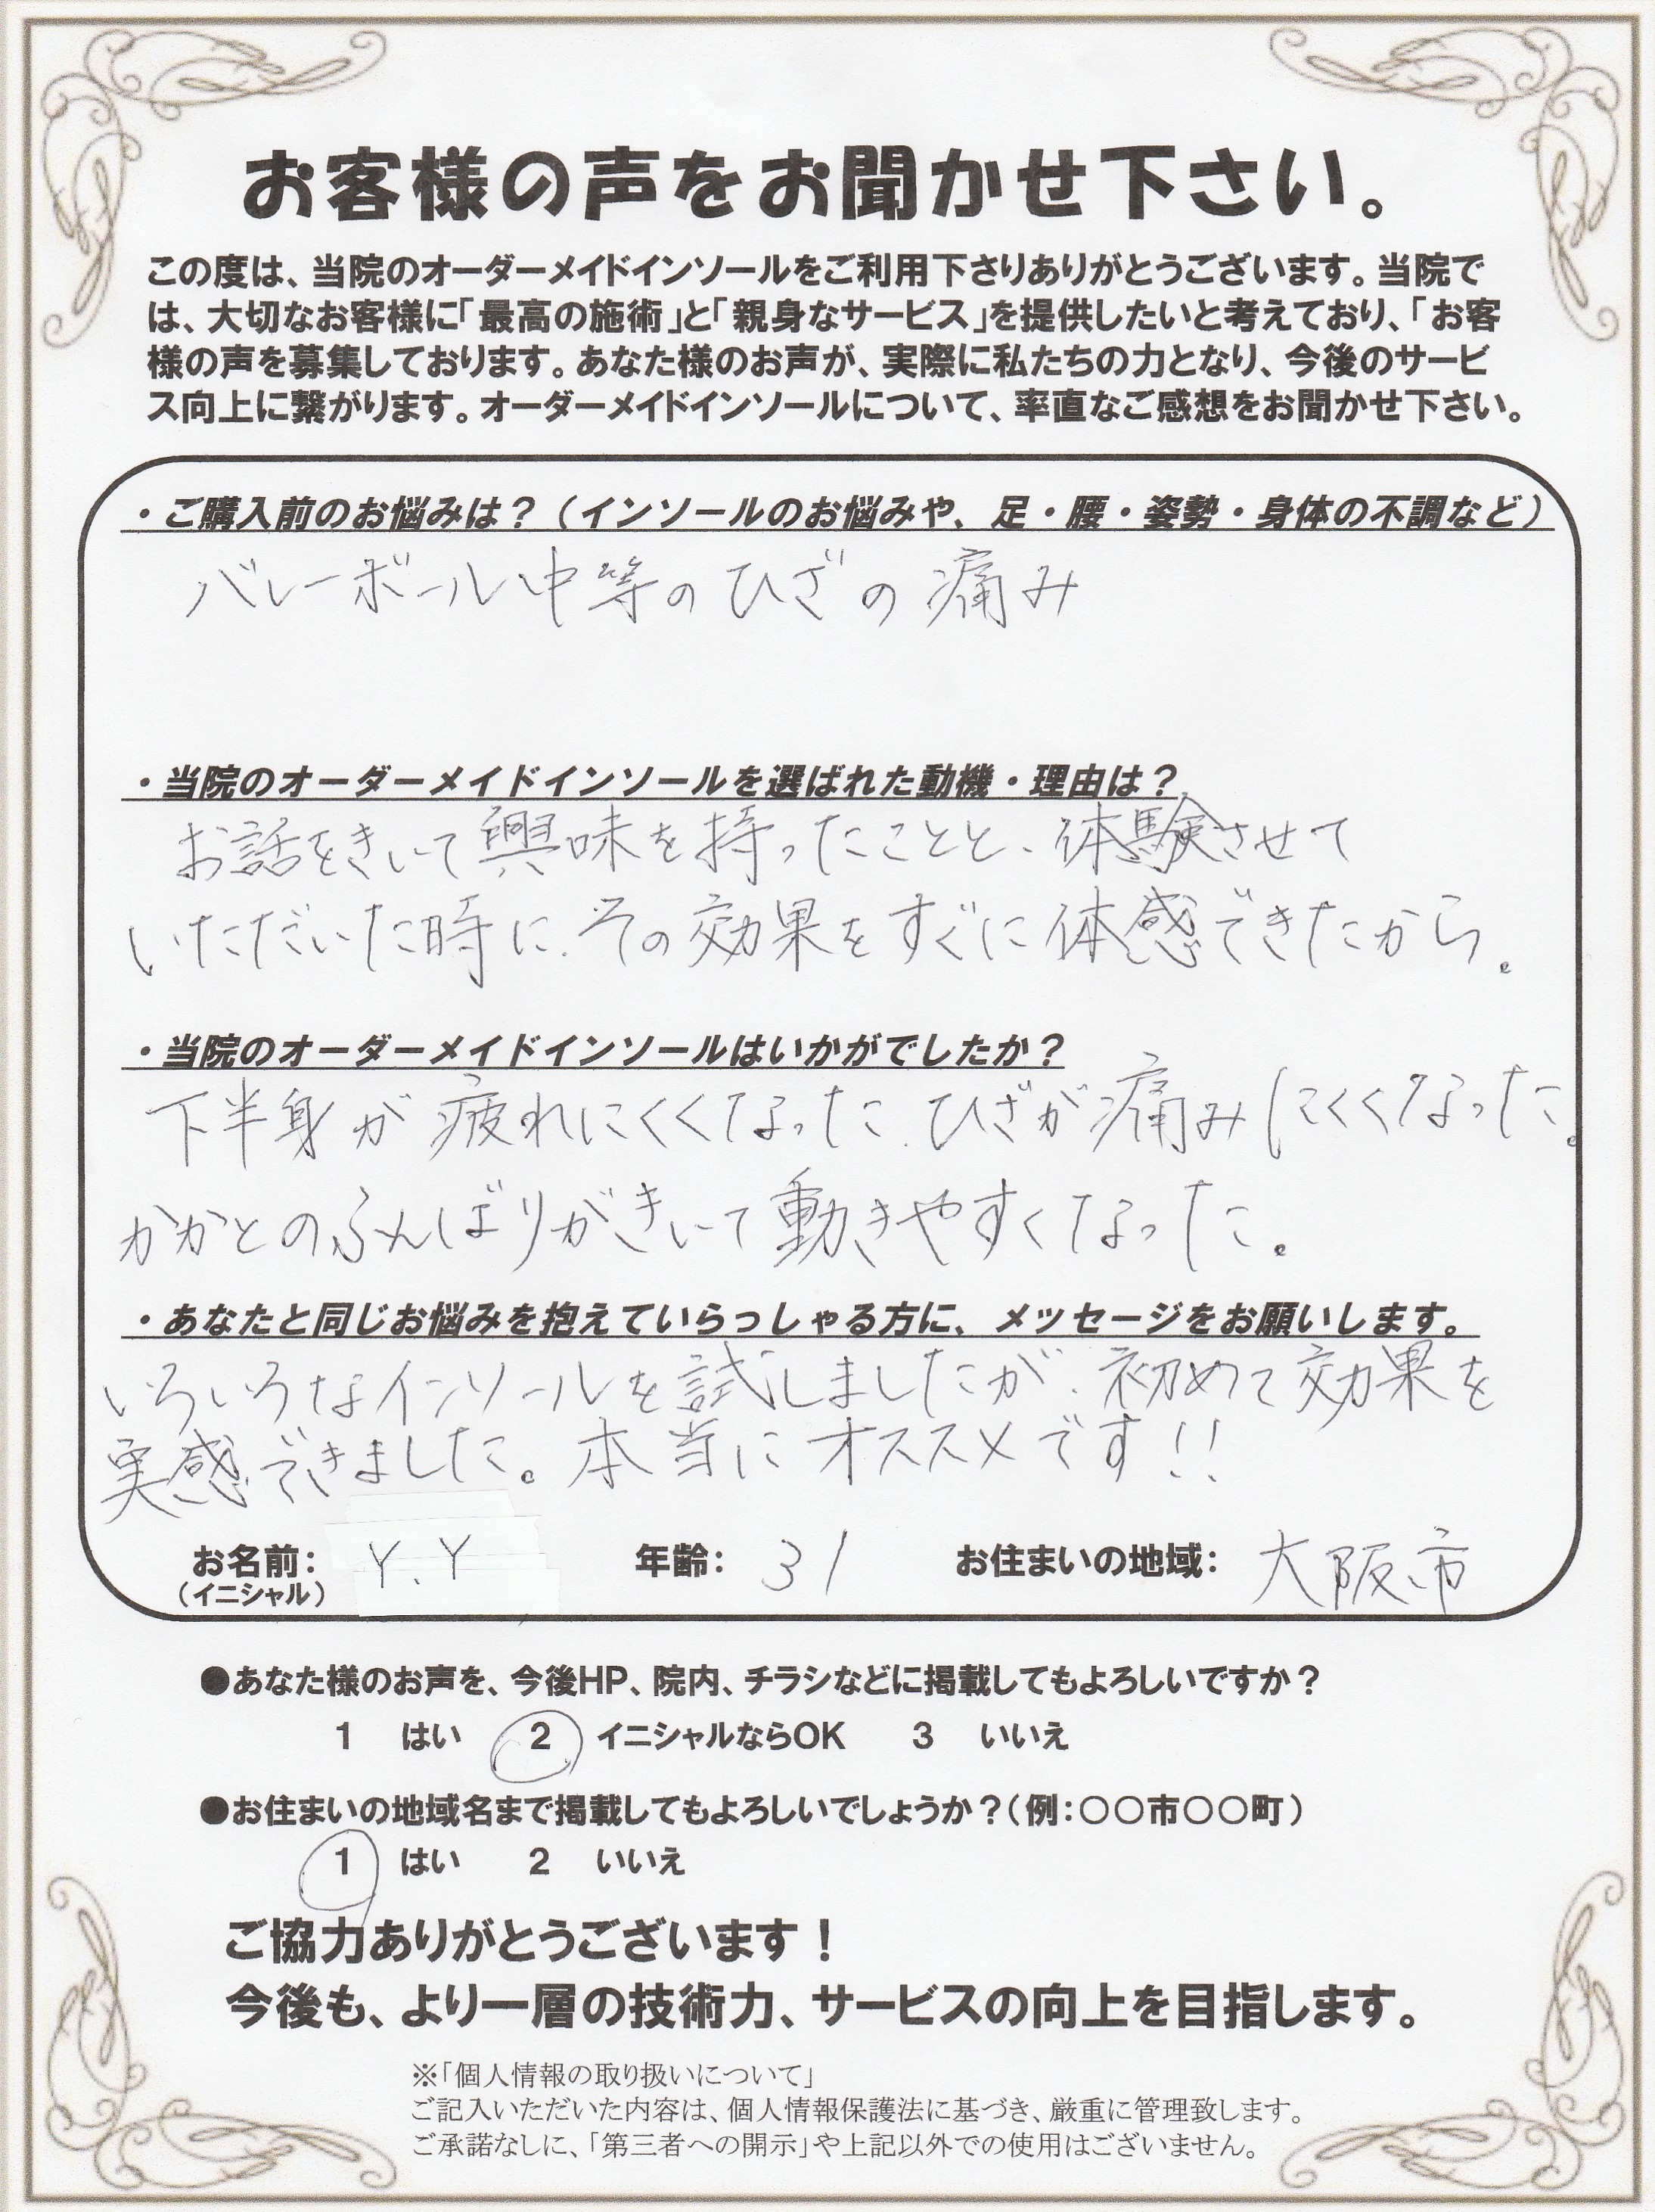 お客様の声をお聞かせ下さい。
この度は、当院のオーダーメイドインソールをご利用下さりありがとうございます。当院で
は、大切なお客様に「最高の施術」と「親身なサービス」を提供したいと考えており、「お客
様の声を募集しております。あなた様のお声が、実際に私たちの力となり、今後のサービ
ス向上に繋がります。オーダーメイドインソールについて、率直なご感想をお聞かせ下さい。
・ご購入前のお悩みは？（インソールのお悩みや、足・腰・姿勢・身体の不調など）
バレーボール中等のひざの痛み
・当院のオーダーメイドインソールを選ばれた動機・理由は？
お話をきいて興味を持ったことと、体験させて
いただいた時に、その効果をすぐに体感できたから。
・当院のオーダーメイドインソールはいかがでしたか？
下半身が疲れにくくなった、ひざが痛みにくくなった。
かかとのふんばりがきいて動きやすくなった。
・あなたと同じお悩みを抱えていらっしゃる方に、メッセージをお願いします。
いろいろなインソールを試しましたが、初めて効果を
実感できました。本当にオススメです!!
お名前： Y.Y 年齢： 31 お住まいの地域： 大阪市
（イニシャル）
●あなた様のお声を、今後HP、院内、チラシなどに掲載してもよろしいですか？
1 はい 2 イニシャルならOK 3 いいえ
●お住まいの地域名まで掲載してもよろしいでしょうか？（例：〇〇市〇〇町）
1 はい 2 いいえ
ご協力ありがとうございます！
今後も、より一層の技術力、サービスの向上を目指します。
※「個人情報の取り扱いについて」
ご記入いただいた内容は、個人情報保護法に基づき、厳重に管理致します。
ご承諾なしに、「第三者への開示」や上記以外での使用はございません。